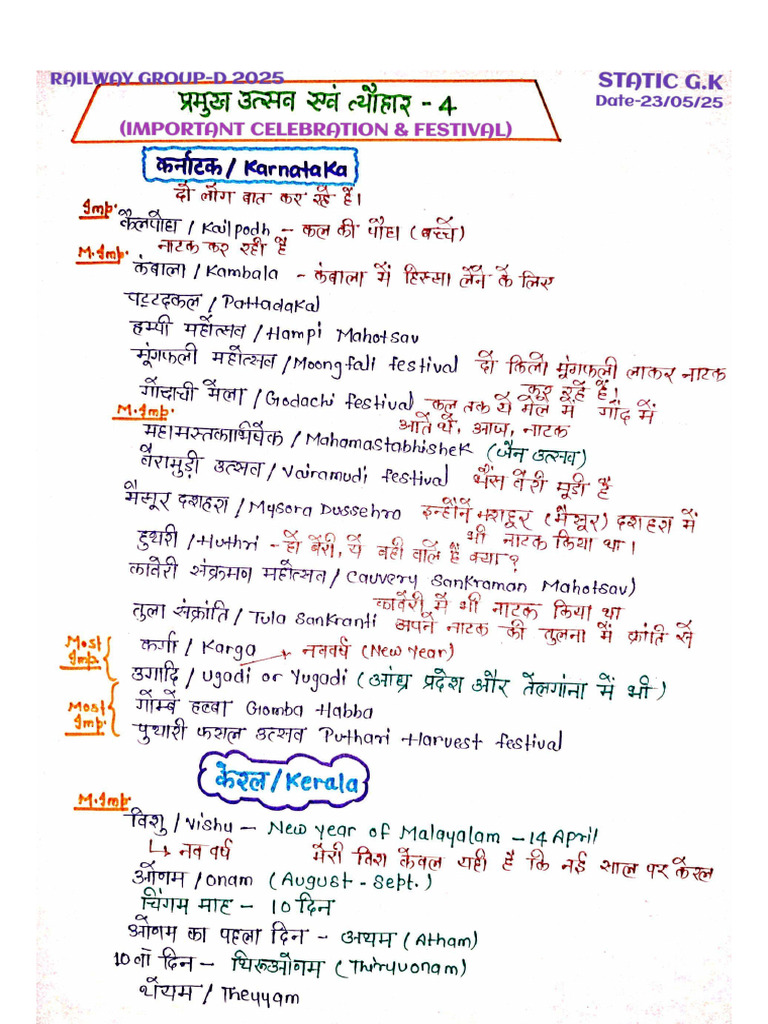 RAILWAY GROUP-D 2025
STATIC G.K
Date-23/05/25
प्रमुख उत्सव एवं त्यौहार - 4
(IMPORTANT CELEBRATION & FESTIVAL)
कर्नाटक / Karnataka
दो लोग बात कर रहे हैं।
Imp.
कैलपौहा / Kailpodh - कल की पौहा (बच्चे)
नाटक कर रही है
M.Imp.
कंबाला / Kambala - कंबाला में हिस्सा लेने के लिए
पट्टदकल / Pattadakal
हम्पी महोत्सव / Hampi Mahotsav
मूंगफली महोत्सव / Moongfali festival दो किलो मूंगफली लाकर नाटक
कर रहे हैं।
गोदाची मेला / Godachi festival कल तक ये मेले में गोंद में
M.Imp.
आते थे, आज, नाटक
महामस्तकाभिषेक / Mahamastabhishek (जैन उत्सव)
वैरामुड़ी उत्सव / Vairamudi festival भैंस वैरी मूडी है
मैसूर दशहरा / Mysora Dussehro इन्होंने मशहूर (मैसूर) दशहरा में
भी नाटक किया था।
हुथरी / Huthri - हो बैरी, ये वही वाले है क्या?
कावेरी संक्रमन महोत्सव / Cauvery Sankraman Mahotsav)
कावेरी में भी नाटक किया था
तुला संक्रांति / Tula Sankranti अपने नाटक की तुलना में क्रांति से
Most Imp.
कर्गा / Karga → नववर्ष (New Year)
उगादि / Ugadi or Yugadi (आंध्र प्रदेश और तेलगांना में भी)
Most Imp.
गोम्बे हल्बा Gomba Habba
पुथारी फसल उत्सव Puthari Harvest festival
केरल / Kerala
M.Imp.
विशु / Vishu - New Year of Malayalam - 14 April
↳ नव वर्ष मेरी विश केवल यही है कि नई साल पर केरल
ओणम / Onam (August - Sept.)
चिंगम माह - 10 दिन
ओणम का पहला दिन - अथम (Atham)
10वाँ दिन - थिरूओणम (Thiruvonam)
थेयम / Theyyam